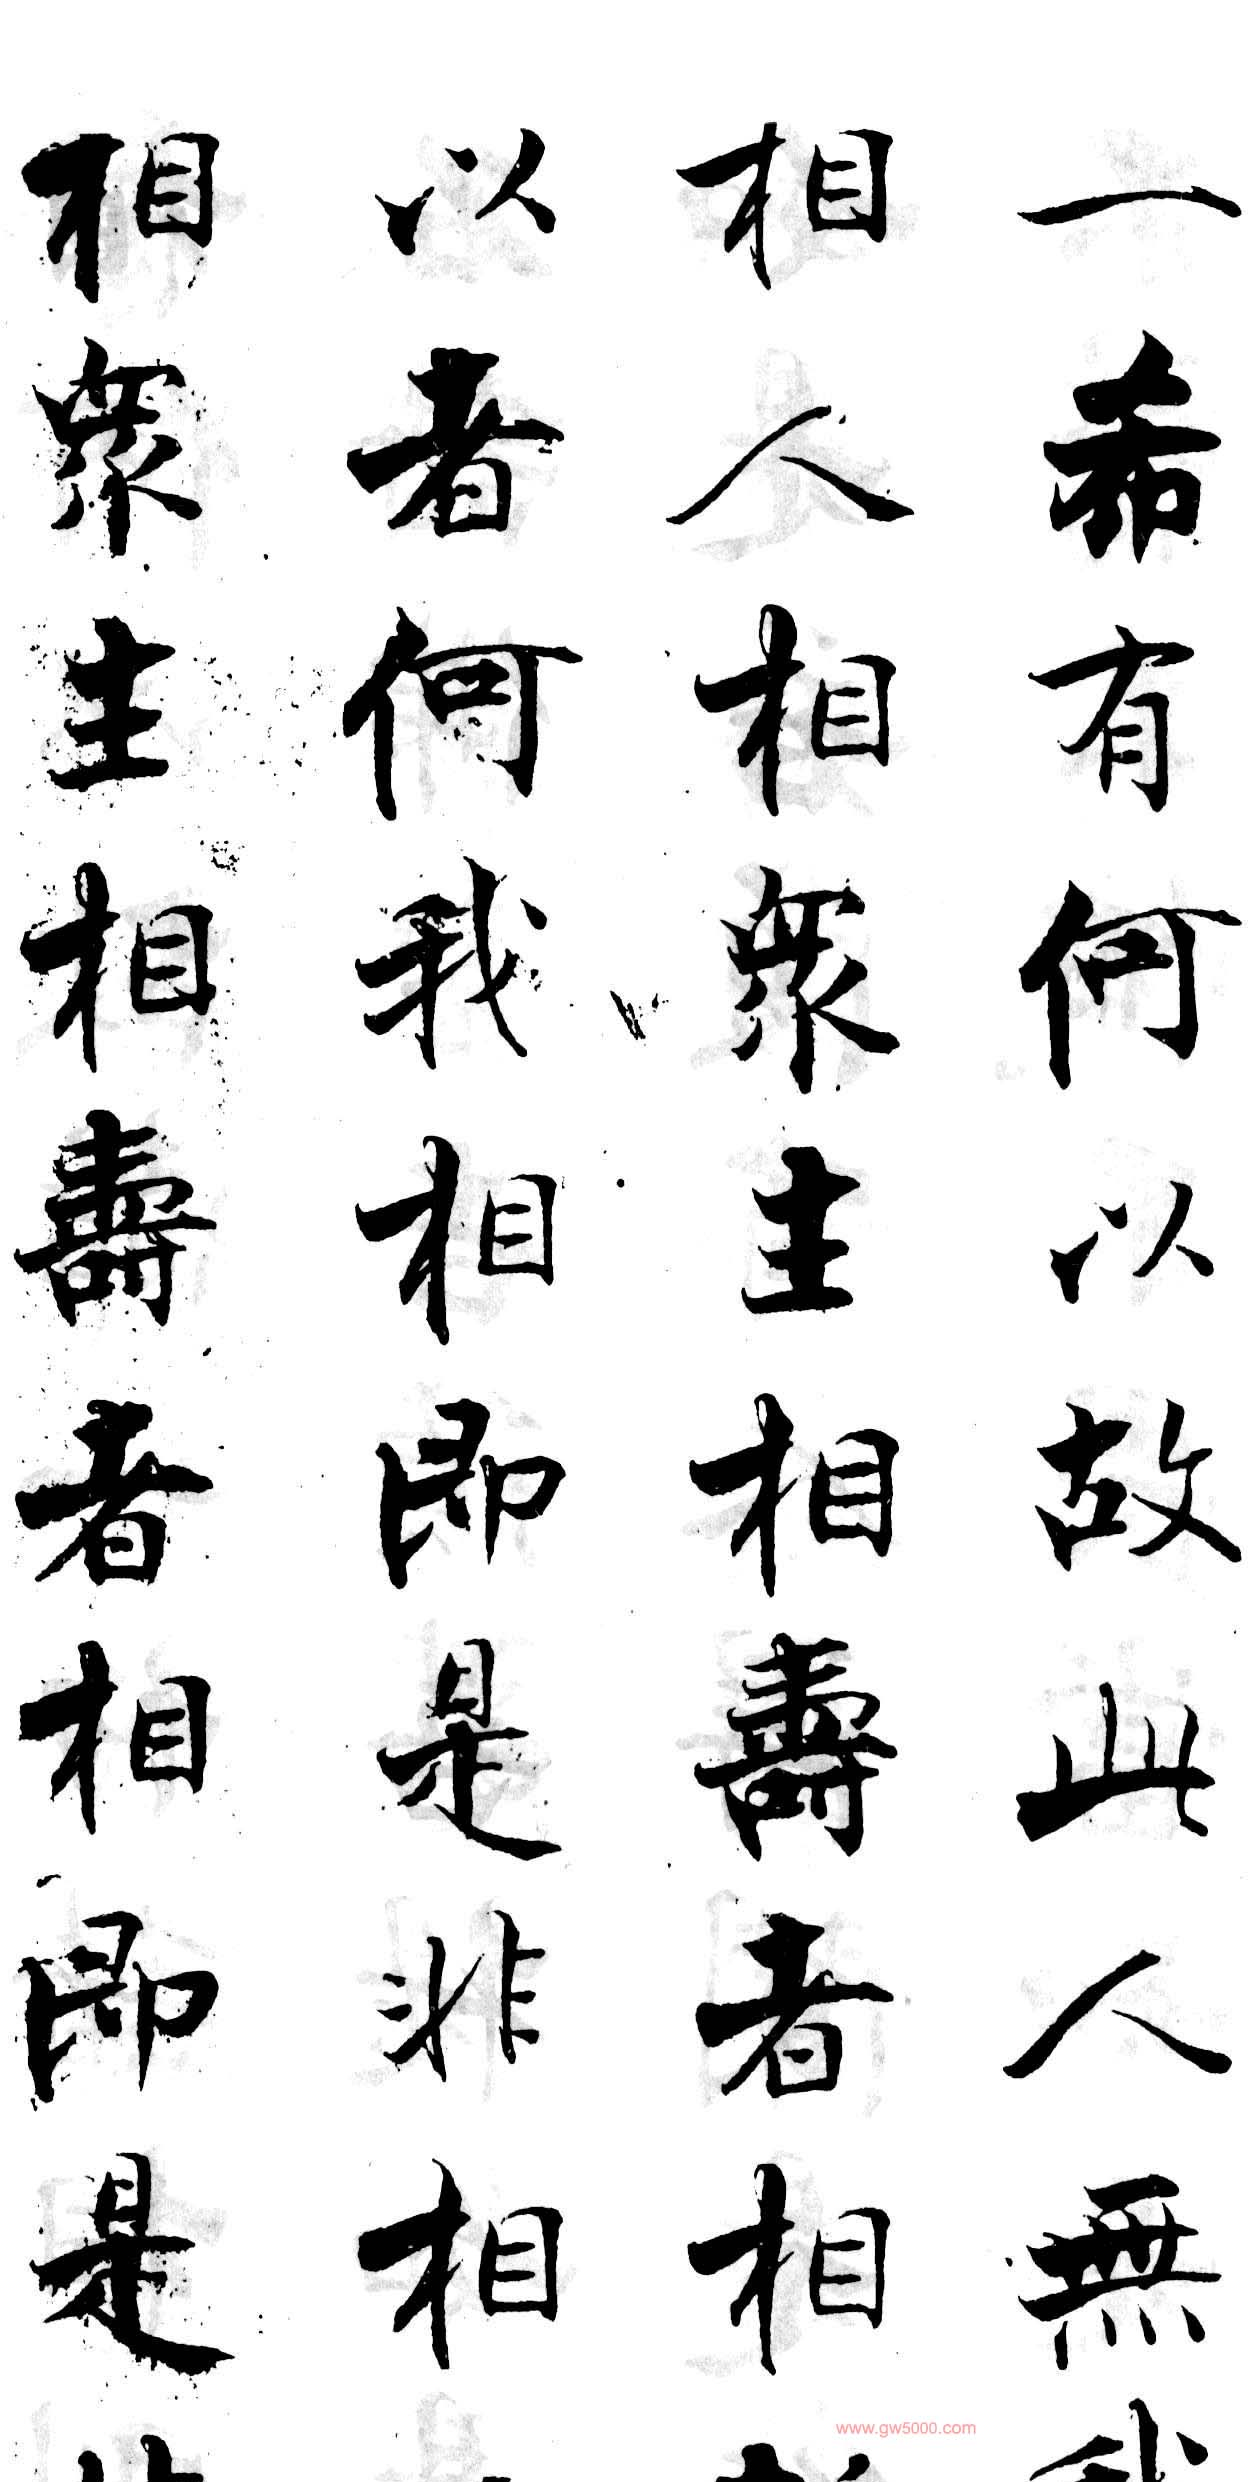 一希有何以故此人無我
相人相衆生相壽者相
以者何我相即是非相
相衆生相壽者相即是
www.gw5000.com